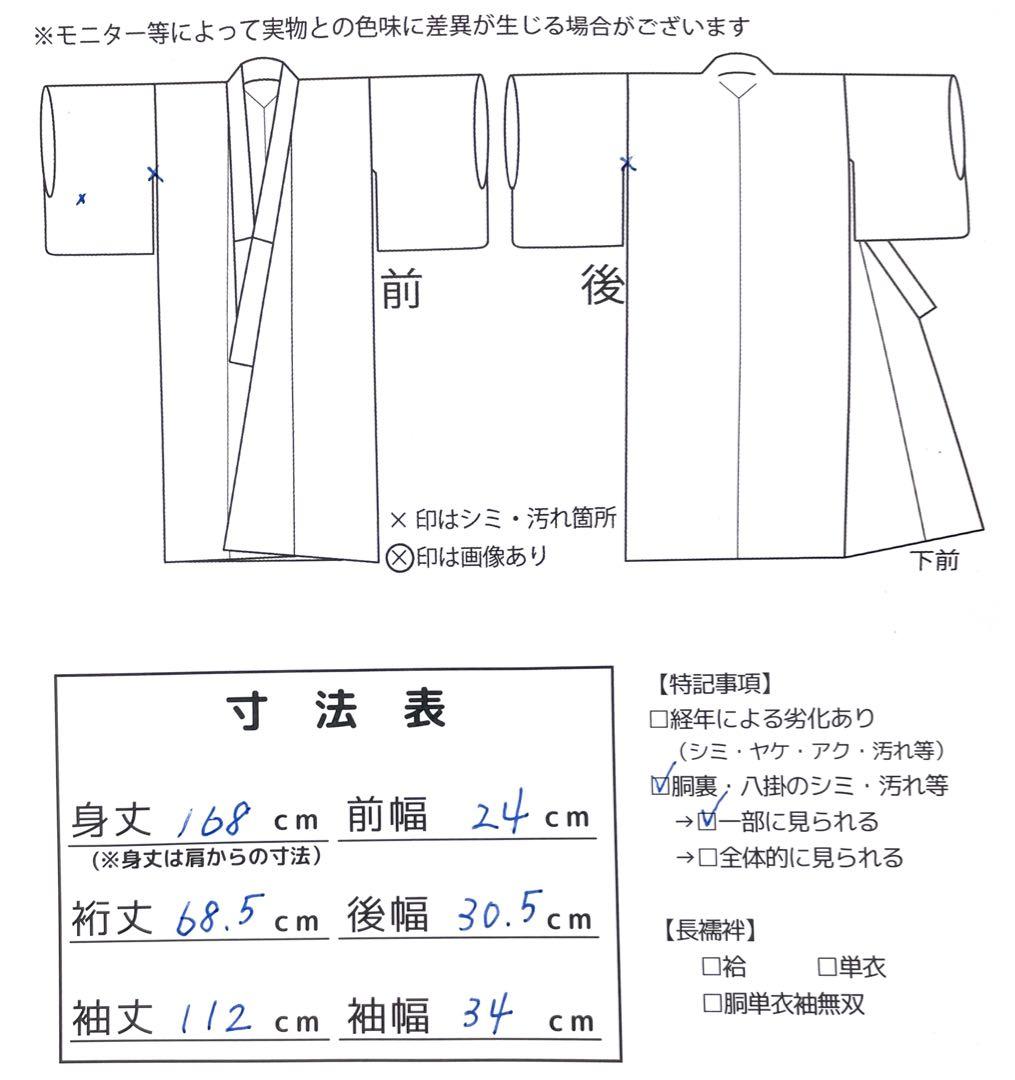 ※モニター等によって実物との色味に差異が生じる場合がございます
前
後
×印はシミ・汚れ箇所
⊗印は画像あり
下前
寸法表
身丈 168 cm 前幅 24 cm
(※身丈は肩からの寸法)
裄丈 68.5 cm 後幅 30.5 cm
袖丈 112 cm 袖幅 34 cm
【特記事項】
□経年による劣化あり
(シミ・ヤケ・アク・汚れ等)
☑胴裏・八掛のシミ・汚れ等
→☑一部に見られる
→□全体的に見られる
【長襦袢】
□袷 □単衣
□胴単衣袖無双